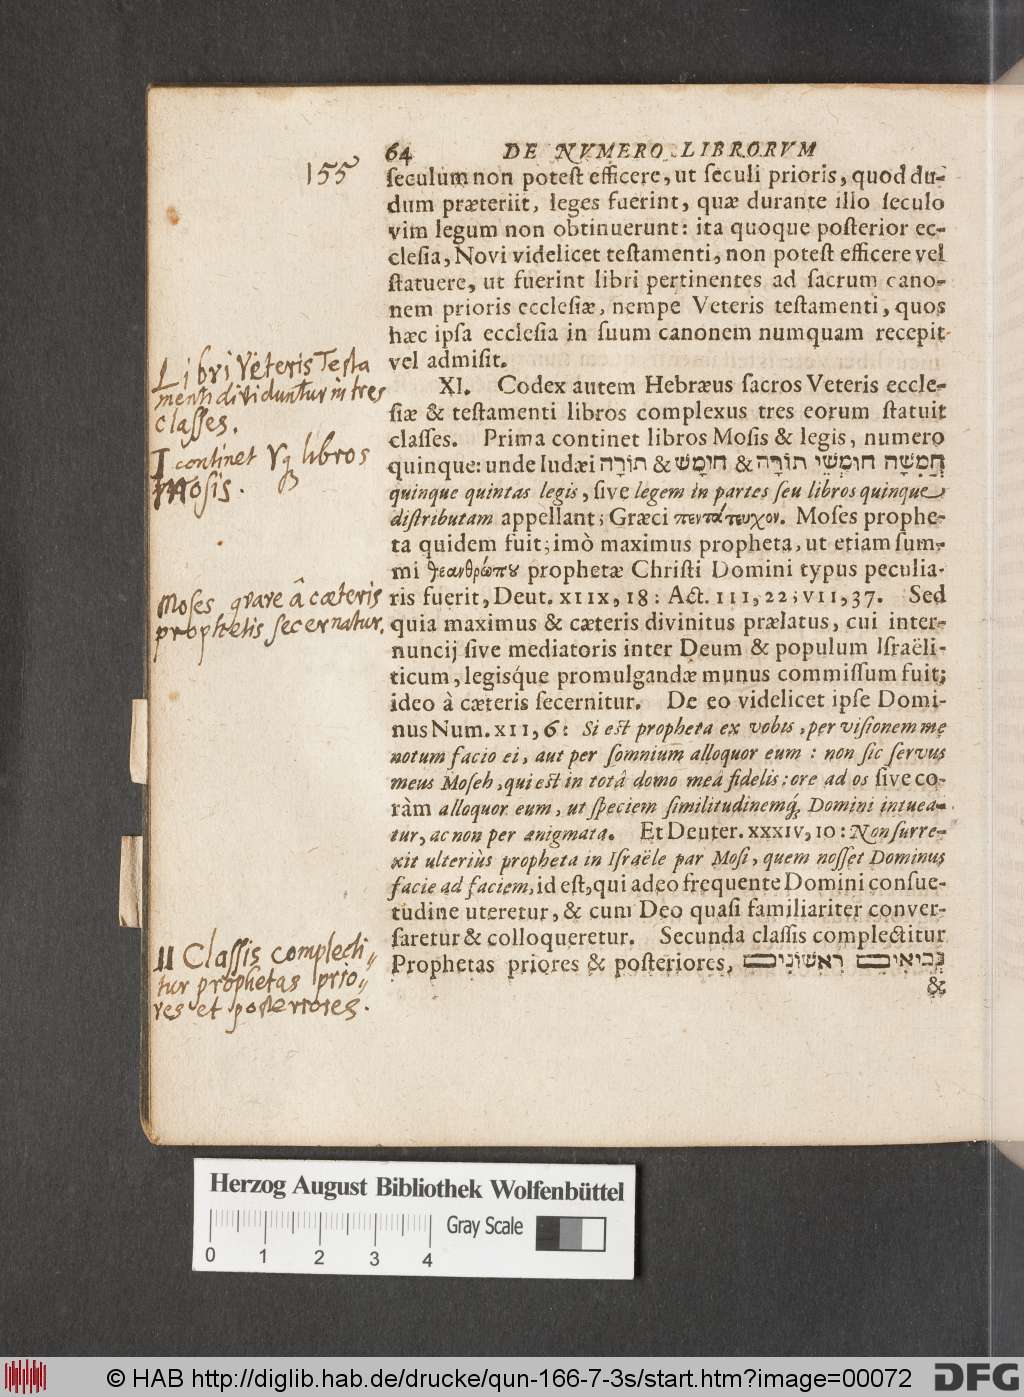 155
64 DE NVMERO LIBRORVM
ſeculum non poteſt efficere, ut ſeculi prioris, quod du-
dum præteriit, leges fuerint, quæ durante illo ſeculo
vim legum non obtinuerunt: ita quoque poſterior ec-
cleſia, Novi videlicet teſtamenti, non poteſt efficere vel
ſtatuere, ut fuerint libri pertinentes ad ſacrum cano-
nem prioris eccleſiæ, nempe Veteris teſtamenti, quos
hæc ipſa eccleſia in ſuum canonem numquam recepit
vel admiſit.
Libri Veteris Testa
menti dividuntur in tres
claſſes.
XI. Codex autem Hebræus ſacros Veteris eccle-
ſiæ & teſtamenti libros complexus tres eorum ſtatuit
claſſes. Prima continet libros Moſis & legis, numero
I continet Vq libros
Mosis.
quinque: unde Iudæi חֲמִשָּׁה חוּמְשֵׁי תוֹרָה & חוּמָשׁ & תוֹרָה
quinque quintas legis, ſive legem in partes ſeu libros quinque
diſtributam appellant; Græci πεντάτευχον. Moſes prophe-
ta quidem fuit; imò maximus propheta, ut etiam ſum-
mi θεανθρώπου prophetæ Chriſti Domini typus peculia-
Moses quare â cæteris
prophetis secernatur.
ris fuerit, Deut. XIIX, 18: Act. III, 22; VII, 37. Sed
quia maximus & cæteris divinitus prælatus, cui inter-
nuncij ſive mediatoris inter Deum & populum Iſraëli-
ticum, legisq́ue promulgandæ munus commiſſum fuit;
ideo à cæteris ſecernitur. De eo videlicet ipſe Domi-
nus Num. XII, 6: Si eſt propheta ex vobis, per viſionem me
notum facio ei, aut per ſomnium alloquor eum: non ſic ſervus
meus Moſeh, qui eſt in totâ domo meâ fidelis: ore ad os ſive co-
ràm alloquor eum, ut ſpeciem ſimilitudinemq́; Domini intuea-
tur, ac non per ænigmata. Et Deuter. XXXIV, 10: Non ſurre-
xit ulteriùs propheta in Iſraële par Moſi, quem noſſet Dominus
facie ad faciem, id eſt, qui adeo frequente Domini conſue-
tudine uteretur, & cum Deo quaſi familiariter conver-
ſaretur & colloqueretur. Secunda claſſis complectitur
II Claſſis complecti„
tur prophetas prio„
res et posteriores.
Prophetas priores & poſteriores, נְבִיאִים רִאשׁוֹנִים
&
Herzog August Bibliothek Wolfenbüttel
Gray Scale
0 1 2 3 4
© HAB http://diglib.hab.de/drucke/qun-166-7-3s/start.htm?image=00072
DFG